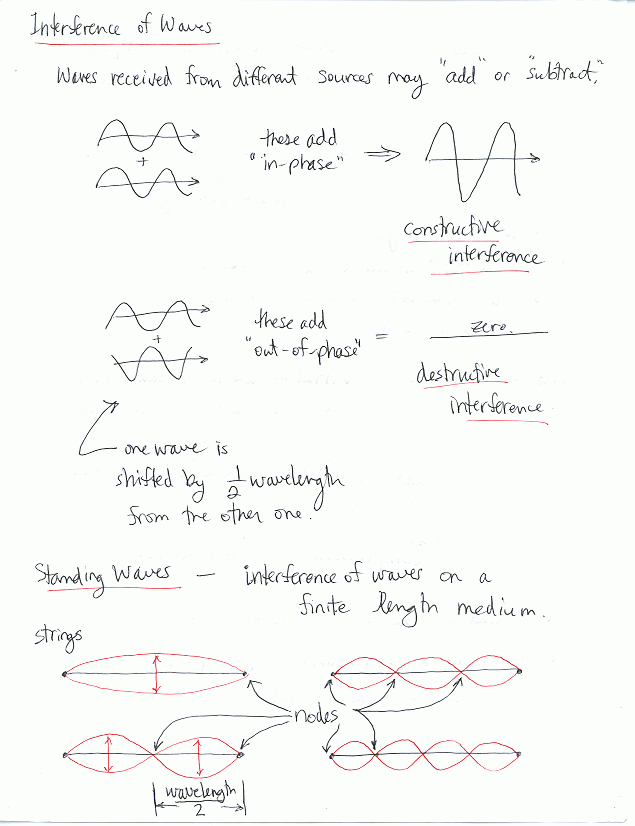 Interference of Waves
Waves received from different sources may "add" or "subtract."
these add
"in-phase"
+
constructive
interference
these add
"out-of-phase"
+
=
zero.
destructive
interference
one wave is
shifted by 1/2 wavelength
from the other one.
Standing Waves — interference of waves on a
finite length medium.
strings
nodes
wavelength
2